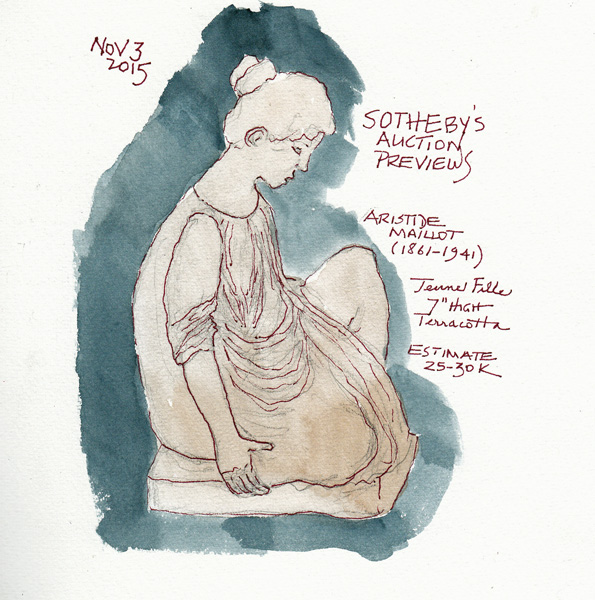 NOV 3
2015
SOTHEBY'S
AUCTION
PREVIEWS
ARISTIDE
MAILLOT
(1861-1941)
Jeune Fille
7" HIGH
Terracotta
ESTIMATE
25-30K